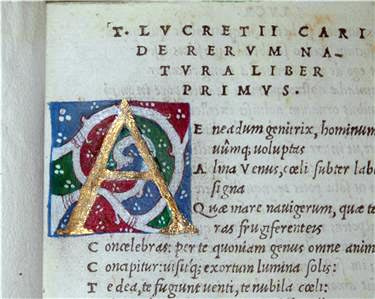 T. LVCRETII CARI
DE RERVM NA-
TVRA LIBER
PRIMVS.
A E neadum genitrix, hominum
uûmq; uoluptas
A lma Venus, cœli subter lab
signa
Q uæ mare nauigerum, quæ te
ras frugiferenteis
C oncelebras: per te quoniam genus omne anim
C oncipitur: uisitq; exortum lumina solis:
T e dea, te fugiunt uenti, te nubila cœli: